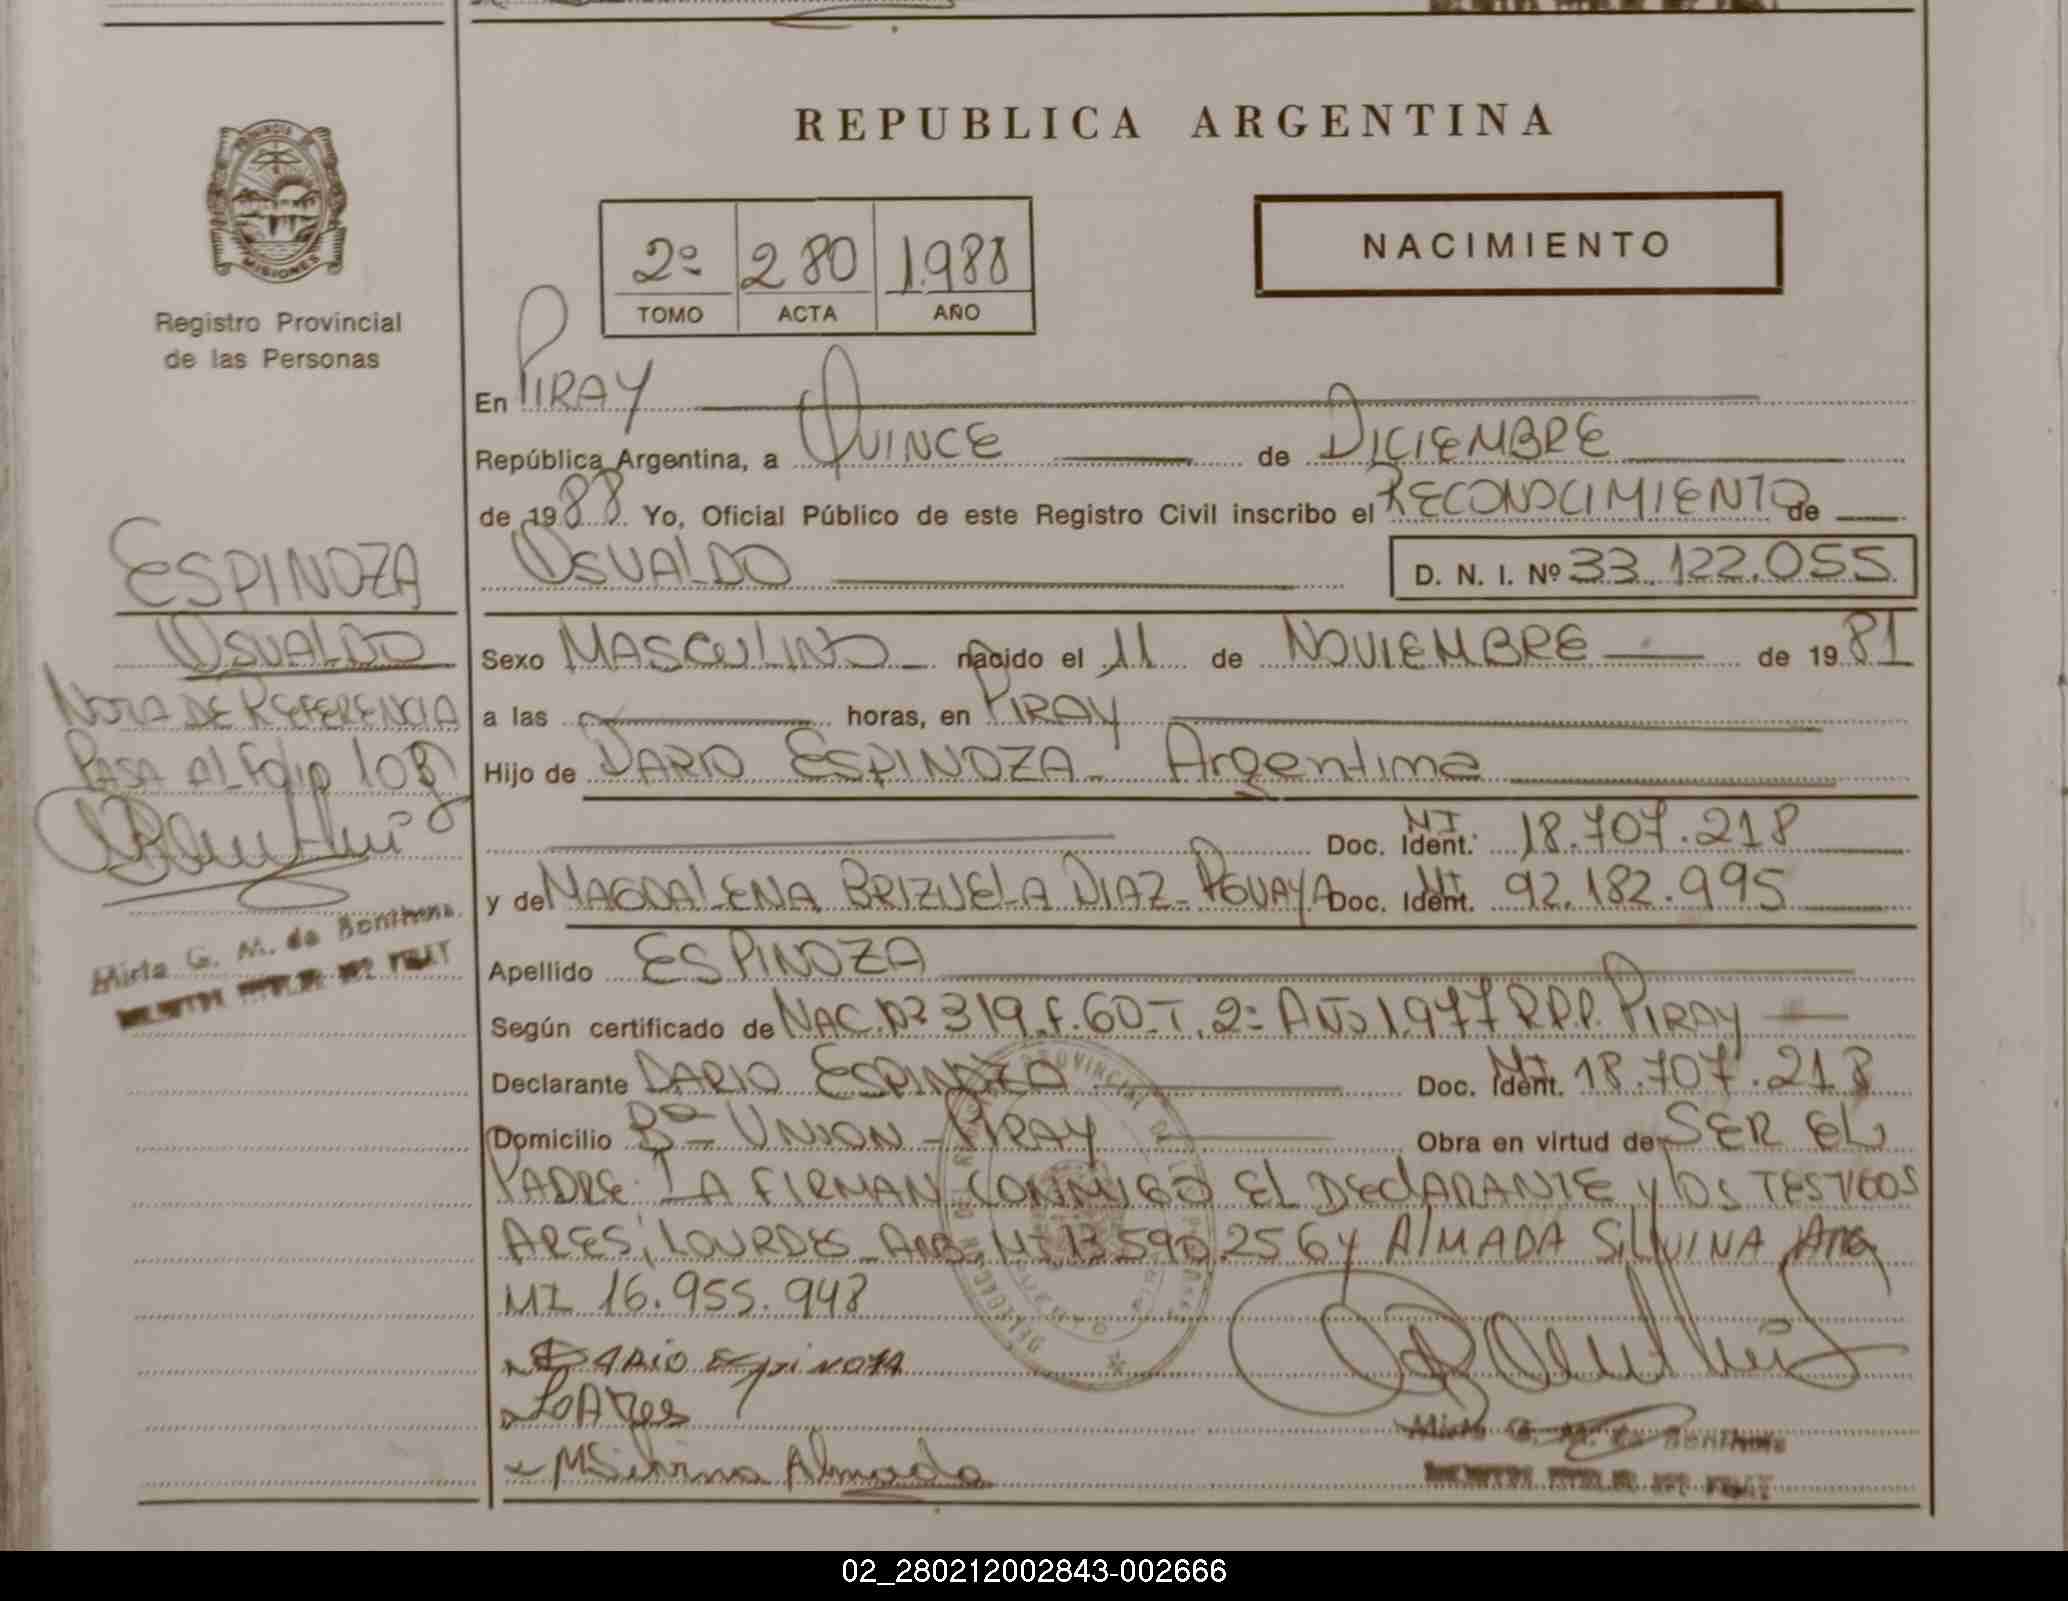 REPUBLICA ARGENTINA
NACIMIENTO
2º 280 1.988
TOMO ACTA AÑO
MISIONES
Registro Provincial
de las Personas
En PIRAY
República Argentina, a QUINCE de DICIEMBRE
de 1988 Yo, Oficial Público de este Registro Civil inscribo el RECONOCIMIENTO de
OSVALDO D. N. I. Nº 33.122.055
ESPINOZA
OSVALDO
NOTA DE REFERENCIA
PASA AL Folio 108
Mirta G. M. de
Sexo MASCULINO nacido el 11 de NOVIEMBRE de 1981
a las horas, en PIRAY
Hijo de DARIO ESPINOZA - Argentino
Doc. Ident. MI 18.707.218
y de MAGDALENA BRIZUELA DIAZ - PGUAYA Doc. Ident. MI 92.182.995
Apellido ESPINOZA
Según certificado de NAC. Nº 319 F. 60 - T. 2º AÑO 1.977 R.P.P. PIRAY
Declarante DARIO ESPINOZA Doc. Ident. MI 18.707.218
Domicilio Bº UNION - PIRAY Obra en virtud de SER EL
PADRE. LA FIRMAN CONMIGO EL DECLARANTE y LOS TESTIGOS
ARES, LOURDES - ARG. MI 13.590.256 Y ALMADA SILVINA Arg
MI 16.955.948
DARIO Espinoza
LoAres
MSilvina Almada
Mirta G. M. de
02_280212002843-002666